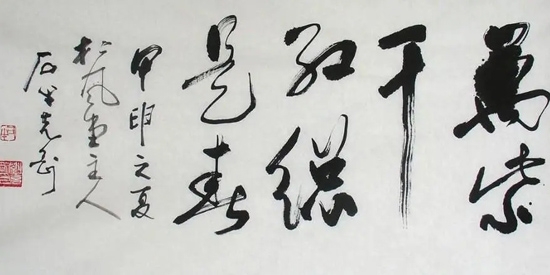 萬紫
千
紅總
是春
甲申之夏
松風堂主人
石